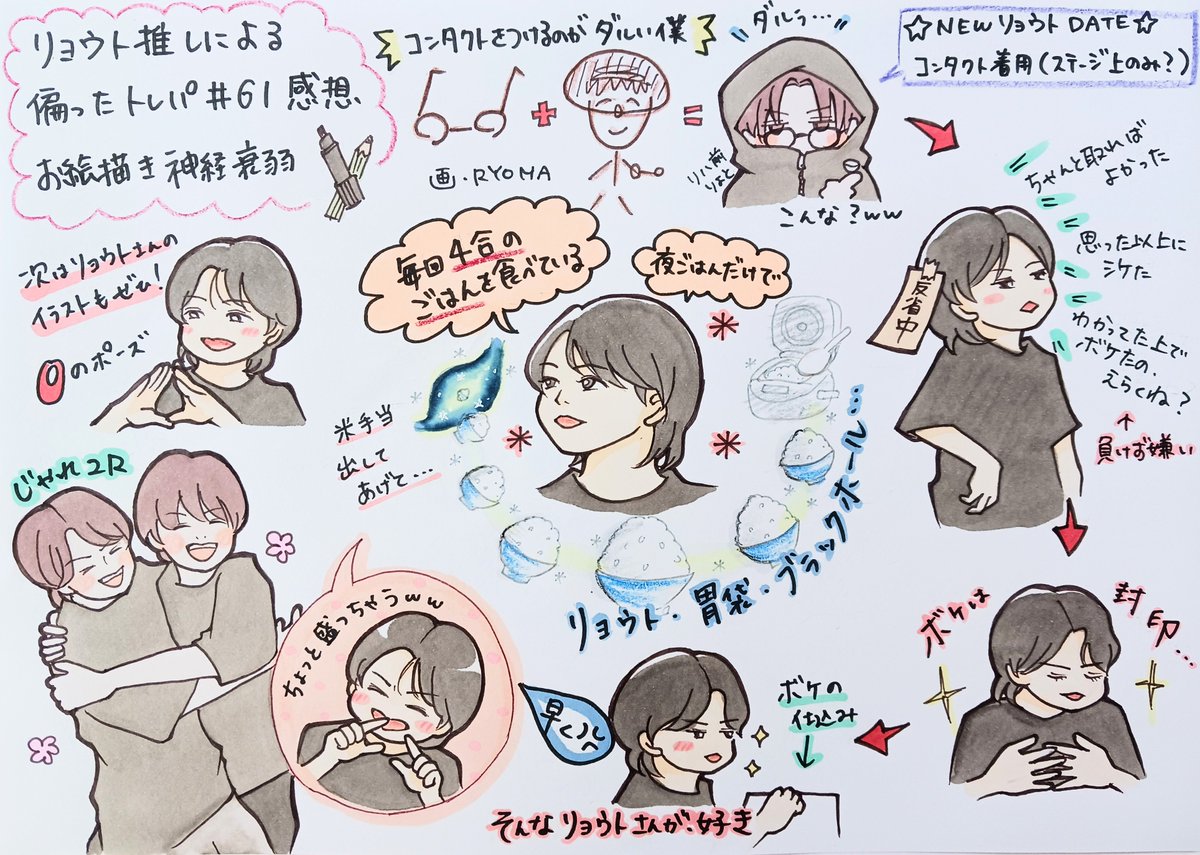 リョウト推しによる
偏ったトレパ#61感想
お絵描き神経衰弱
コンタクトをつけるのがダルい僕
画・RYOMA
ダルっ…
リハ前
りょうと
こんな?ww
☆NEWリョウトDATE☆
コンタクト着用(ステージ上のみ?)
ちゃんと取れば
よかった
思った以上に
シケた
わかってた上で
ボケたの、
えらくね?
負けず嫌い
反省中
次はリョウトさんの
イラストもぜひ!
0のポーズ
毎回4合の
ごはんを食べている
夜ごはんだけで
米手当
出して
あげて…
リョウト・胃袋・ブラックホール…
じゃれコR
ちょっと盛っちゃうww
早くっ
ボケの
仕込み
ボケは
封印…
そんなリョウトさんが好き